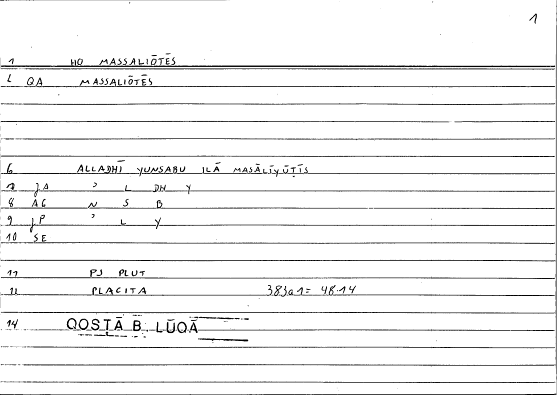 1
1 HO MASSALIŌTĒS
2 QA MASSALIŌTĒS
6 ALLADHĪ YUNSABU ILĀ MASĀLIYŪṬĪS
JA ʾ L DH Y
8 AC N S B
9 JP ʾ L Y
10 SE
11 PJ PLUT
PLACITA 383a1= 48.14
14 QOSṬĀ B. LŪQĀ